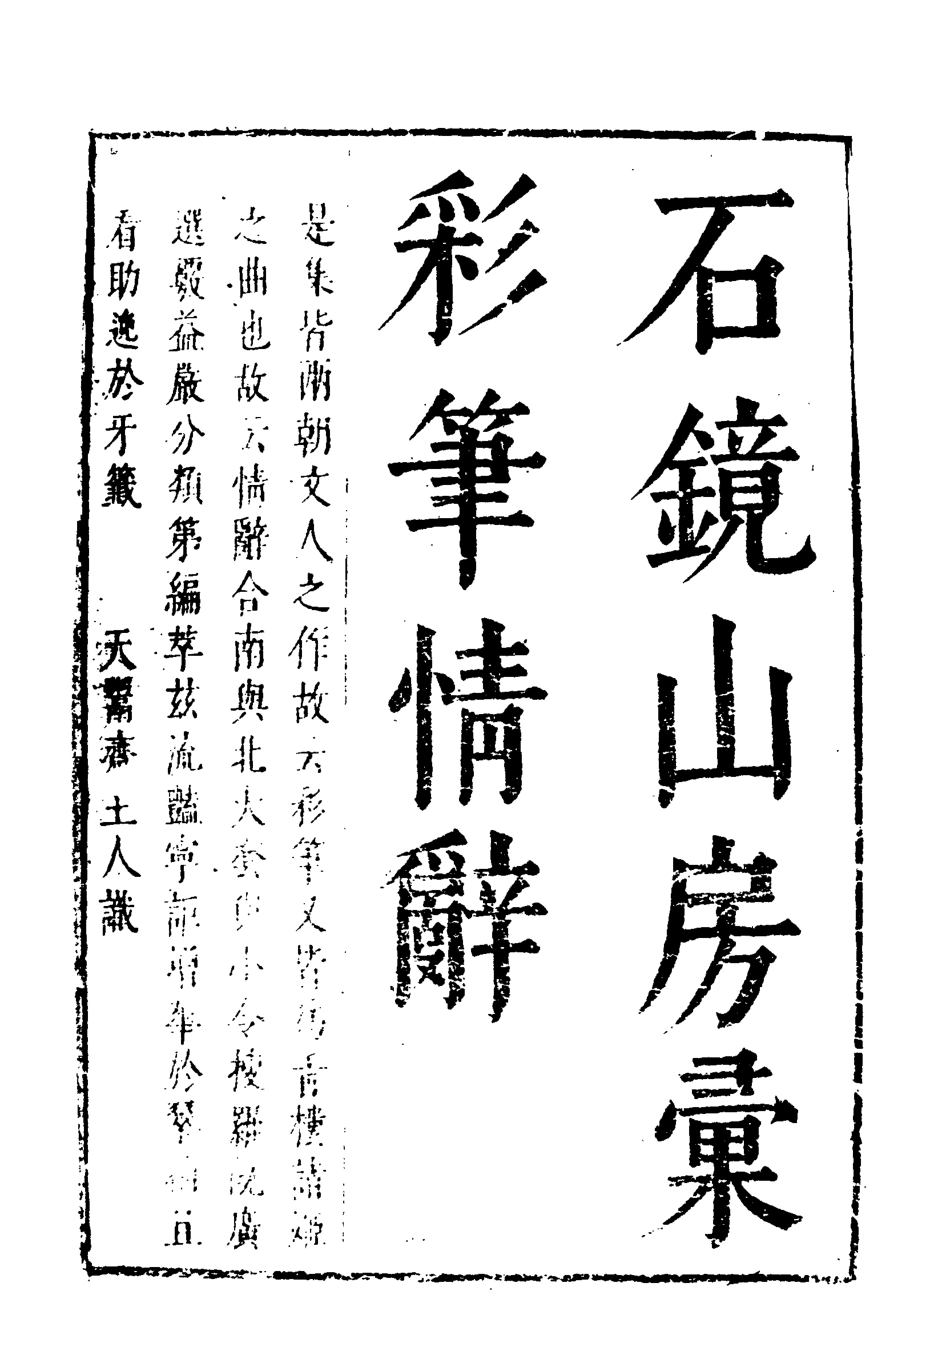 石鏡山房彙
彩筆情辭
是集皆兩朝文人之作故云彩筆又皆爲青樓諸姬
之曲也故云情辭合南與北大套與小令搜羅既廣
選嚴益嚴分類第編萃茲流豔寧詎增華於琴且
看助逸於牙籤
天齋士人識